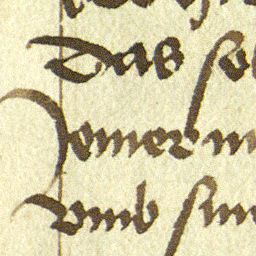 Das so
Jemer m
vmb sin